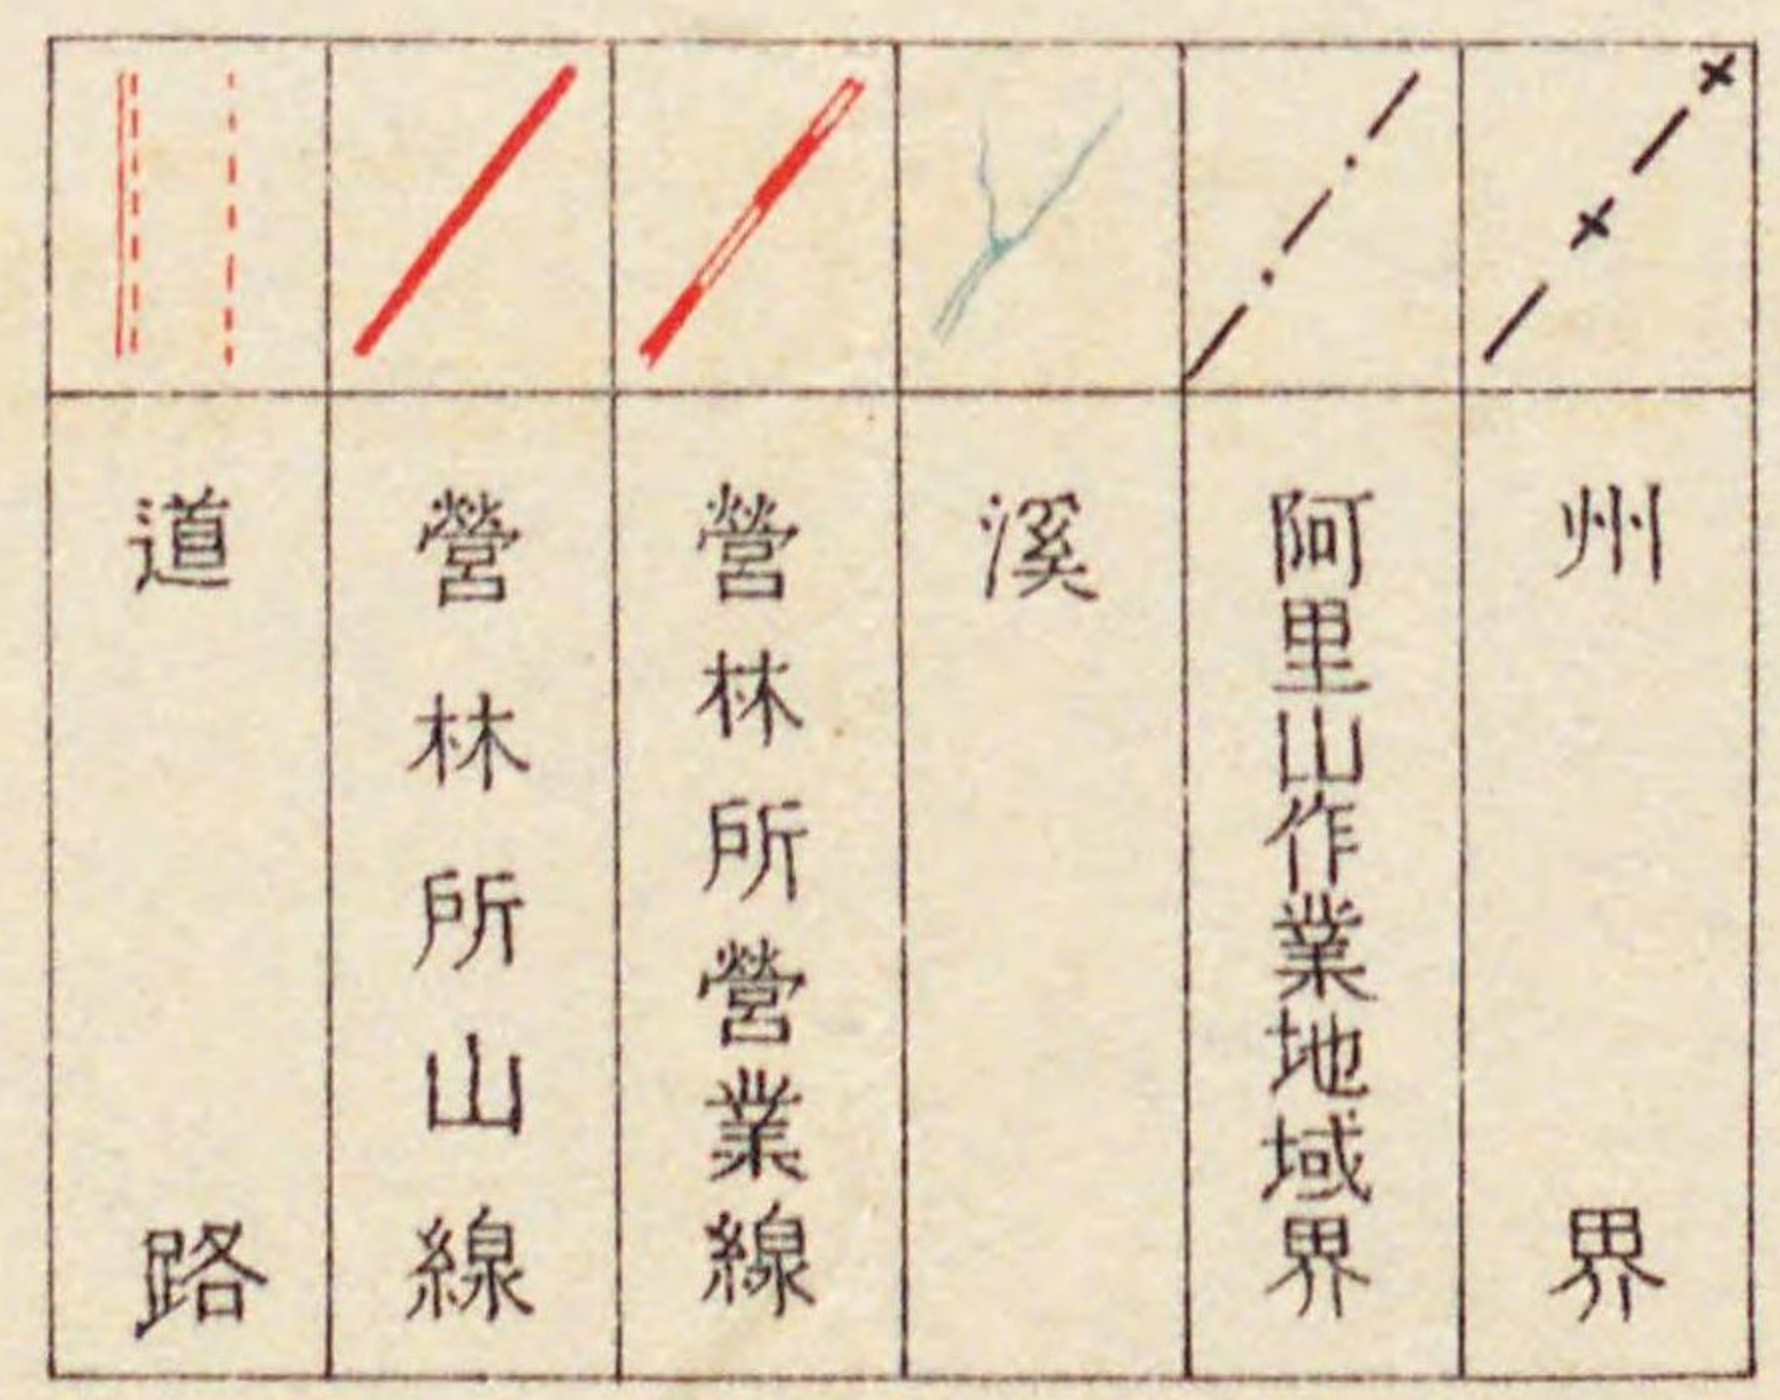 州界
阿里山作業地域界
溪
營林所營業線
營林所山線
道路